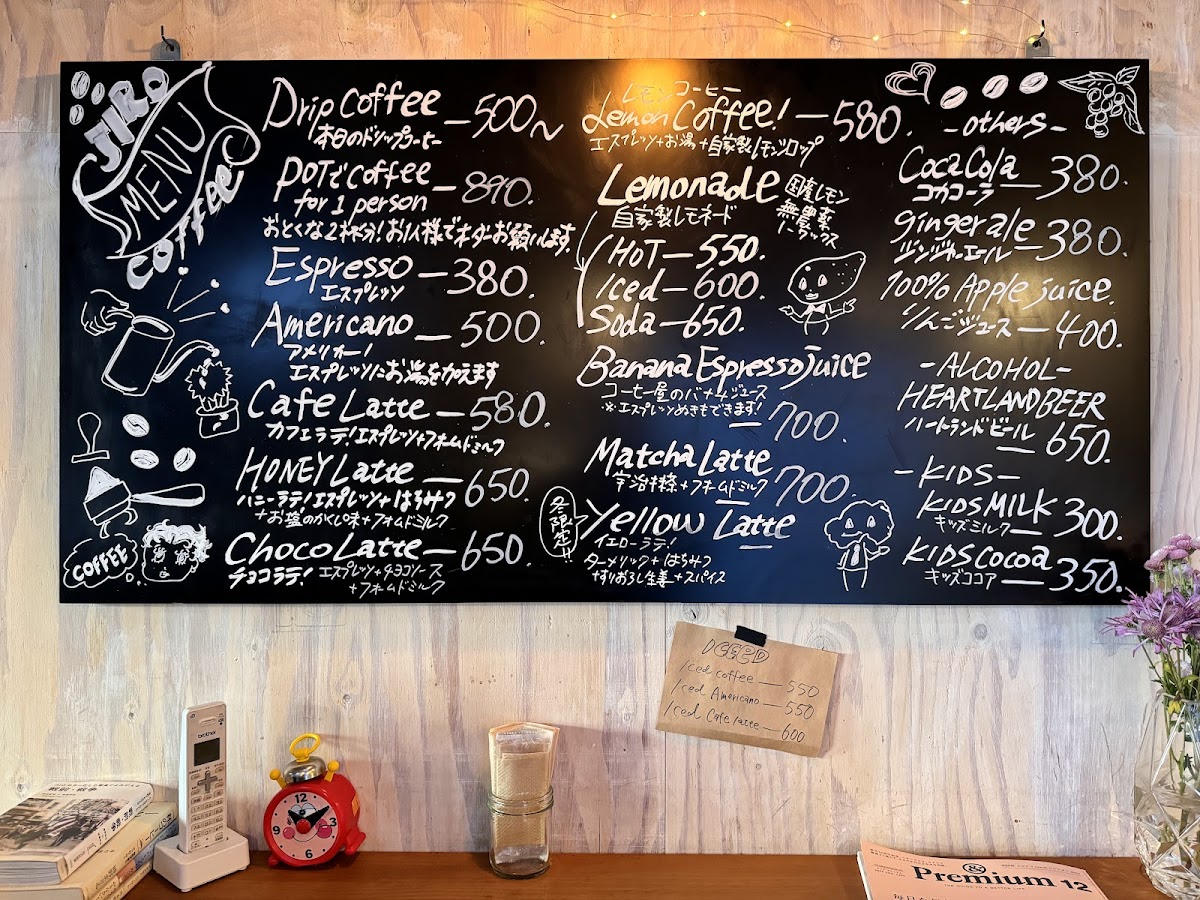 JIRO
MENU
coffee
COFFEE
Drip coffee — 500〜
本日のドリップコーヒー
POTで coffee
for 1 person — 890.
おとくな2杯分！お1人様でオーダーお願いします.
Espresso — 380.
エスプレッソ
Americano — 500.
アメリカーノ
エスプレッソにお湯を加えます
Cafe Latte — 580.
カフェラテ！エスプレッソ+フォームドミルク
HONEY Latte — 650.
ハニーラテ！エスプレッソ+はちみつ
+お塩のかくし味+フォームドミルク
Choco Latte — 650.
チョコラテ！エスプレッソ+チョコソース
+フォームドミルク
レモンコーヒー
Lemon Coffee! — 580.
エスプレッソ+お湯+自家製レモンシロップ
Lemonade
自家製レモネード
国産レモン
無農薬
ノーワックス
HOT — 550.
Iced — 600.
Soda — 650.
Banana Espresso juice
コーヒー屋のバナナジュース
※エスプレッソぬきもできます！ — 700.
Matcha Latte
宇治抹茶+フォームドミルク — 700.
冬限定!!
Yellow Latte
イエローラテ！
ターメリック+はちみつ
+すりおろし生姜+スパイス
- others -
Coca Cola
コカコーラ — 380.
ginger ale
ジンジャーエール — 380.
100% Apple juice.
りんごジュース — 400.
- ALCOHOL -
HEARTLAND BEER
ハートランドビール 650.
- KIDS -
KIDS MILK
キッズミルク — 300.
KIDS COCOA
キッズココア — 350.
ICED
Iced coffee — 550
Iced Americano — 550
Iced Cafe latte — 600
brother
12
3
6
9
& Premium 12